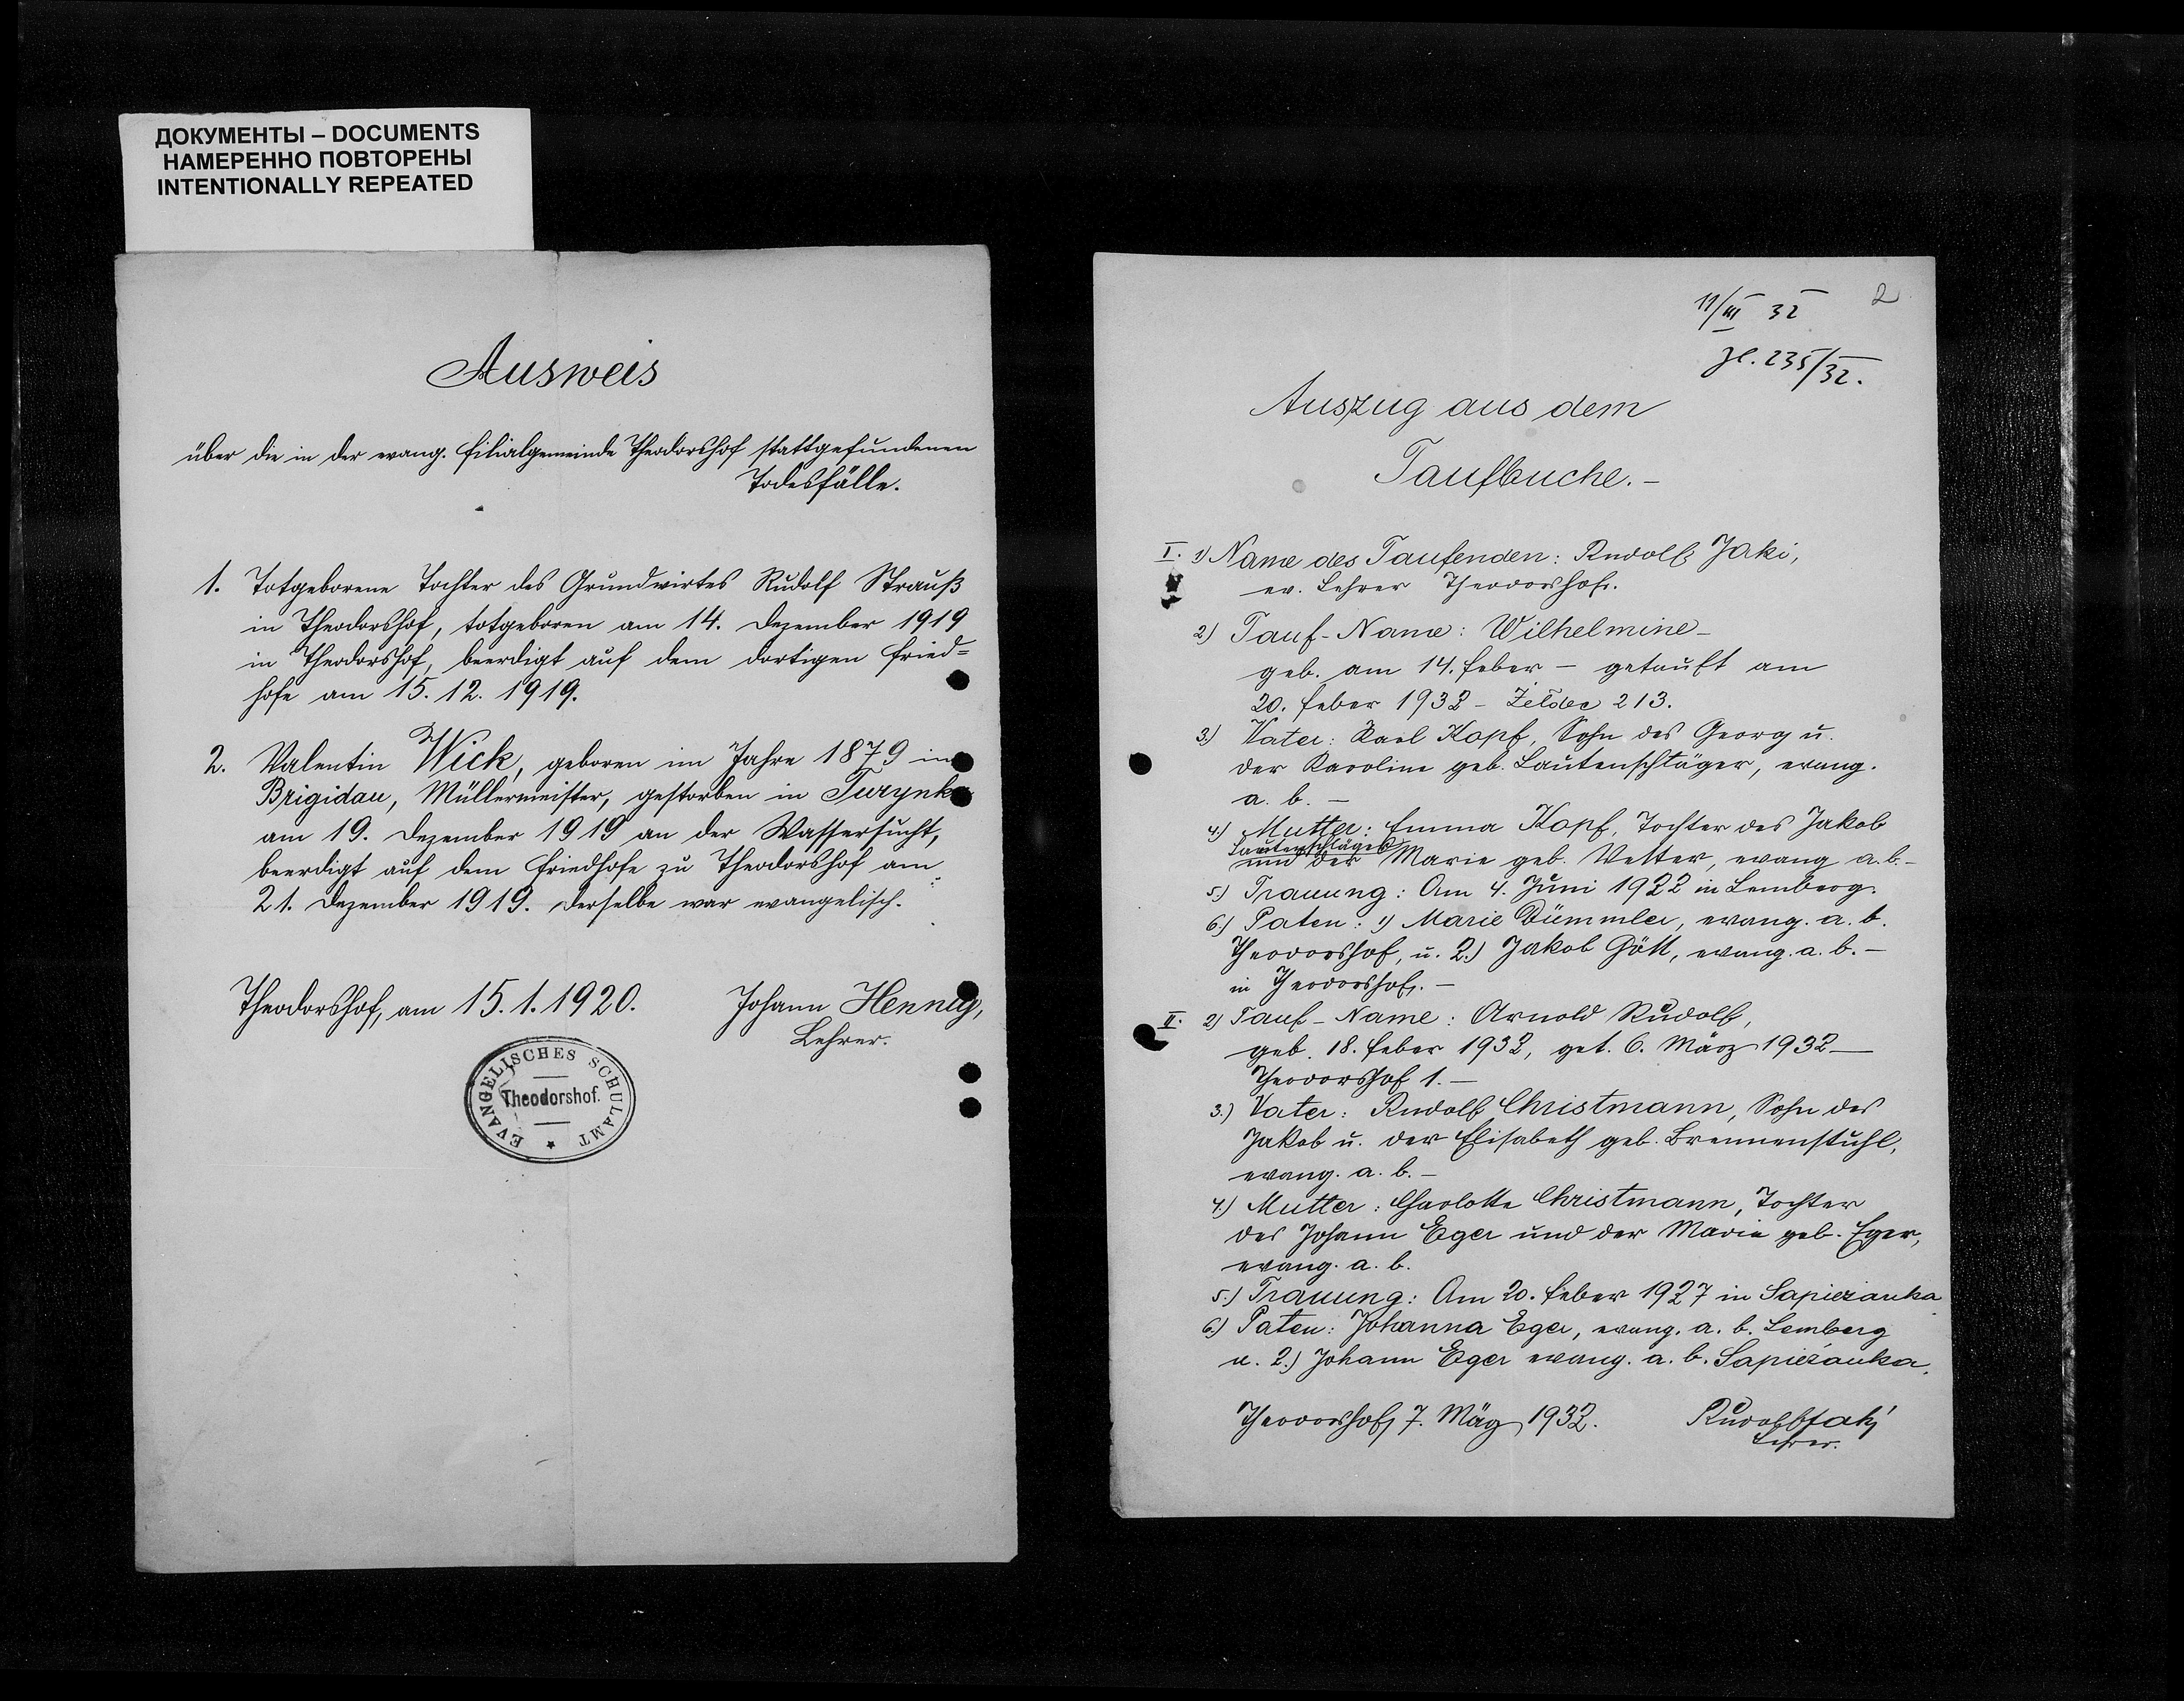 ДОКУМЕНТЫ – DOCUMENTS
НАМЕРЕННО ПОВТОРЕНЫ
INTENTIONALLY REPEATED
Ausweis
über die in der evang. Filialgemeinde Theodorshof stattgefundenen
Todesfälle.
1. Totgeborene Tochter des Grundwirtes Rudolf Strauß
in Theodorshof, totgeboren am 14. Dezember 1919
in Theodorshof, beerdigt auf dem dortigen Fried=
hofe am 15. 12. 1919.
2. Valentin Wick, geboren im Jahre 1879 in
Brigidau, Müllermeister, gestorben in Turynka
am 19. Dezember 1919 an der Wassersucht,
beerdigt auf dem Friedhofe zu Theodorshof am
21. Dezember 1919. Derselbe war evangelisch.
Theodorshof, am 15. 1. 1920. Johann Hennig,
Lehrer.
EVANGELISCHES SCHULAMT
Theodorshof.
2
11/III 32
Zl. 235/32.
Auszug aus dem
Taufbuche.-
I. 1) Name des Taufenden: Rudolf Jaki,
ev. Lehrer Theodorshof.
2) Tauf-Name: Wilhelmine-
geb. am 14. Feber - getauft am
20. Feber 1932 - Żełdec 213.
3.) Vater: Karl Kopf, Sohn des Georg u.
der Karoline geb. Lautenschläger, evang.
a. b. -
4.) Mutter: Emma Kopf, Tochter des Jakob
Lautenschläger
und der Marie geb. Vetter, evang a. b.-
5.) Trauung: Am 4. Juni 1922 in Lemberg.
6.) Paten: 1) Marie Dümmler, evang. a. b.
Theodorshof, u. 2.) Jakob Gött, evang. a. b. -
in Theodorshof. -
II. 2) Tauf-Name: Arnold Rudolf,
geb. 18. Feber 1932, get. 6. März 1932 -
Theodorshof 1. -
3.) Vater: Rudolf Christmann, Sohn des
Jakob u. der Elisabeth geb. Brennenstuhl,
evang. a. b. -
4.) Mutter: Charlotte Christmann, Tochter
des Johann Eger und der Marie geb. Eger,
evang. a. b.
5.) Trauung: Am 20. Feber 1927 in Sapieżanka
6.) Paten: Johanna Eger, evang. a. b. Lemberg
u. 2.) Johann Eger evang. a. b. Sapieżanka.
Theodorshof, 7. März 1932. Rudolf Jaki
Lehrer.